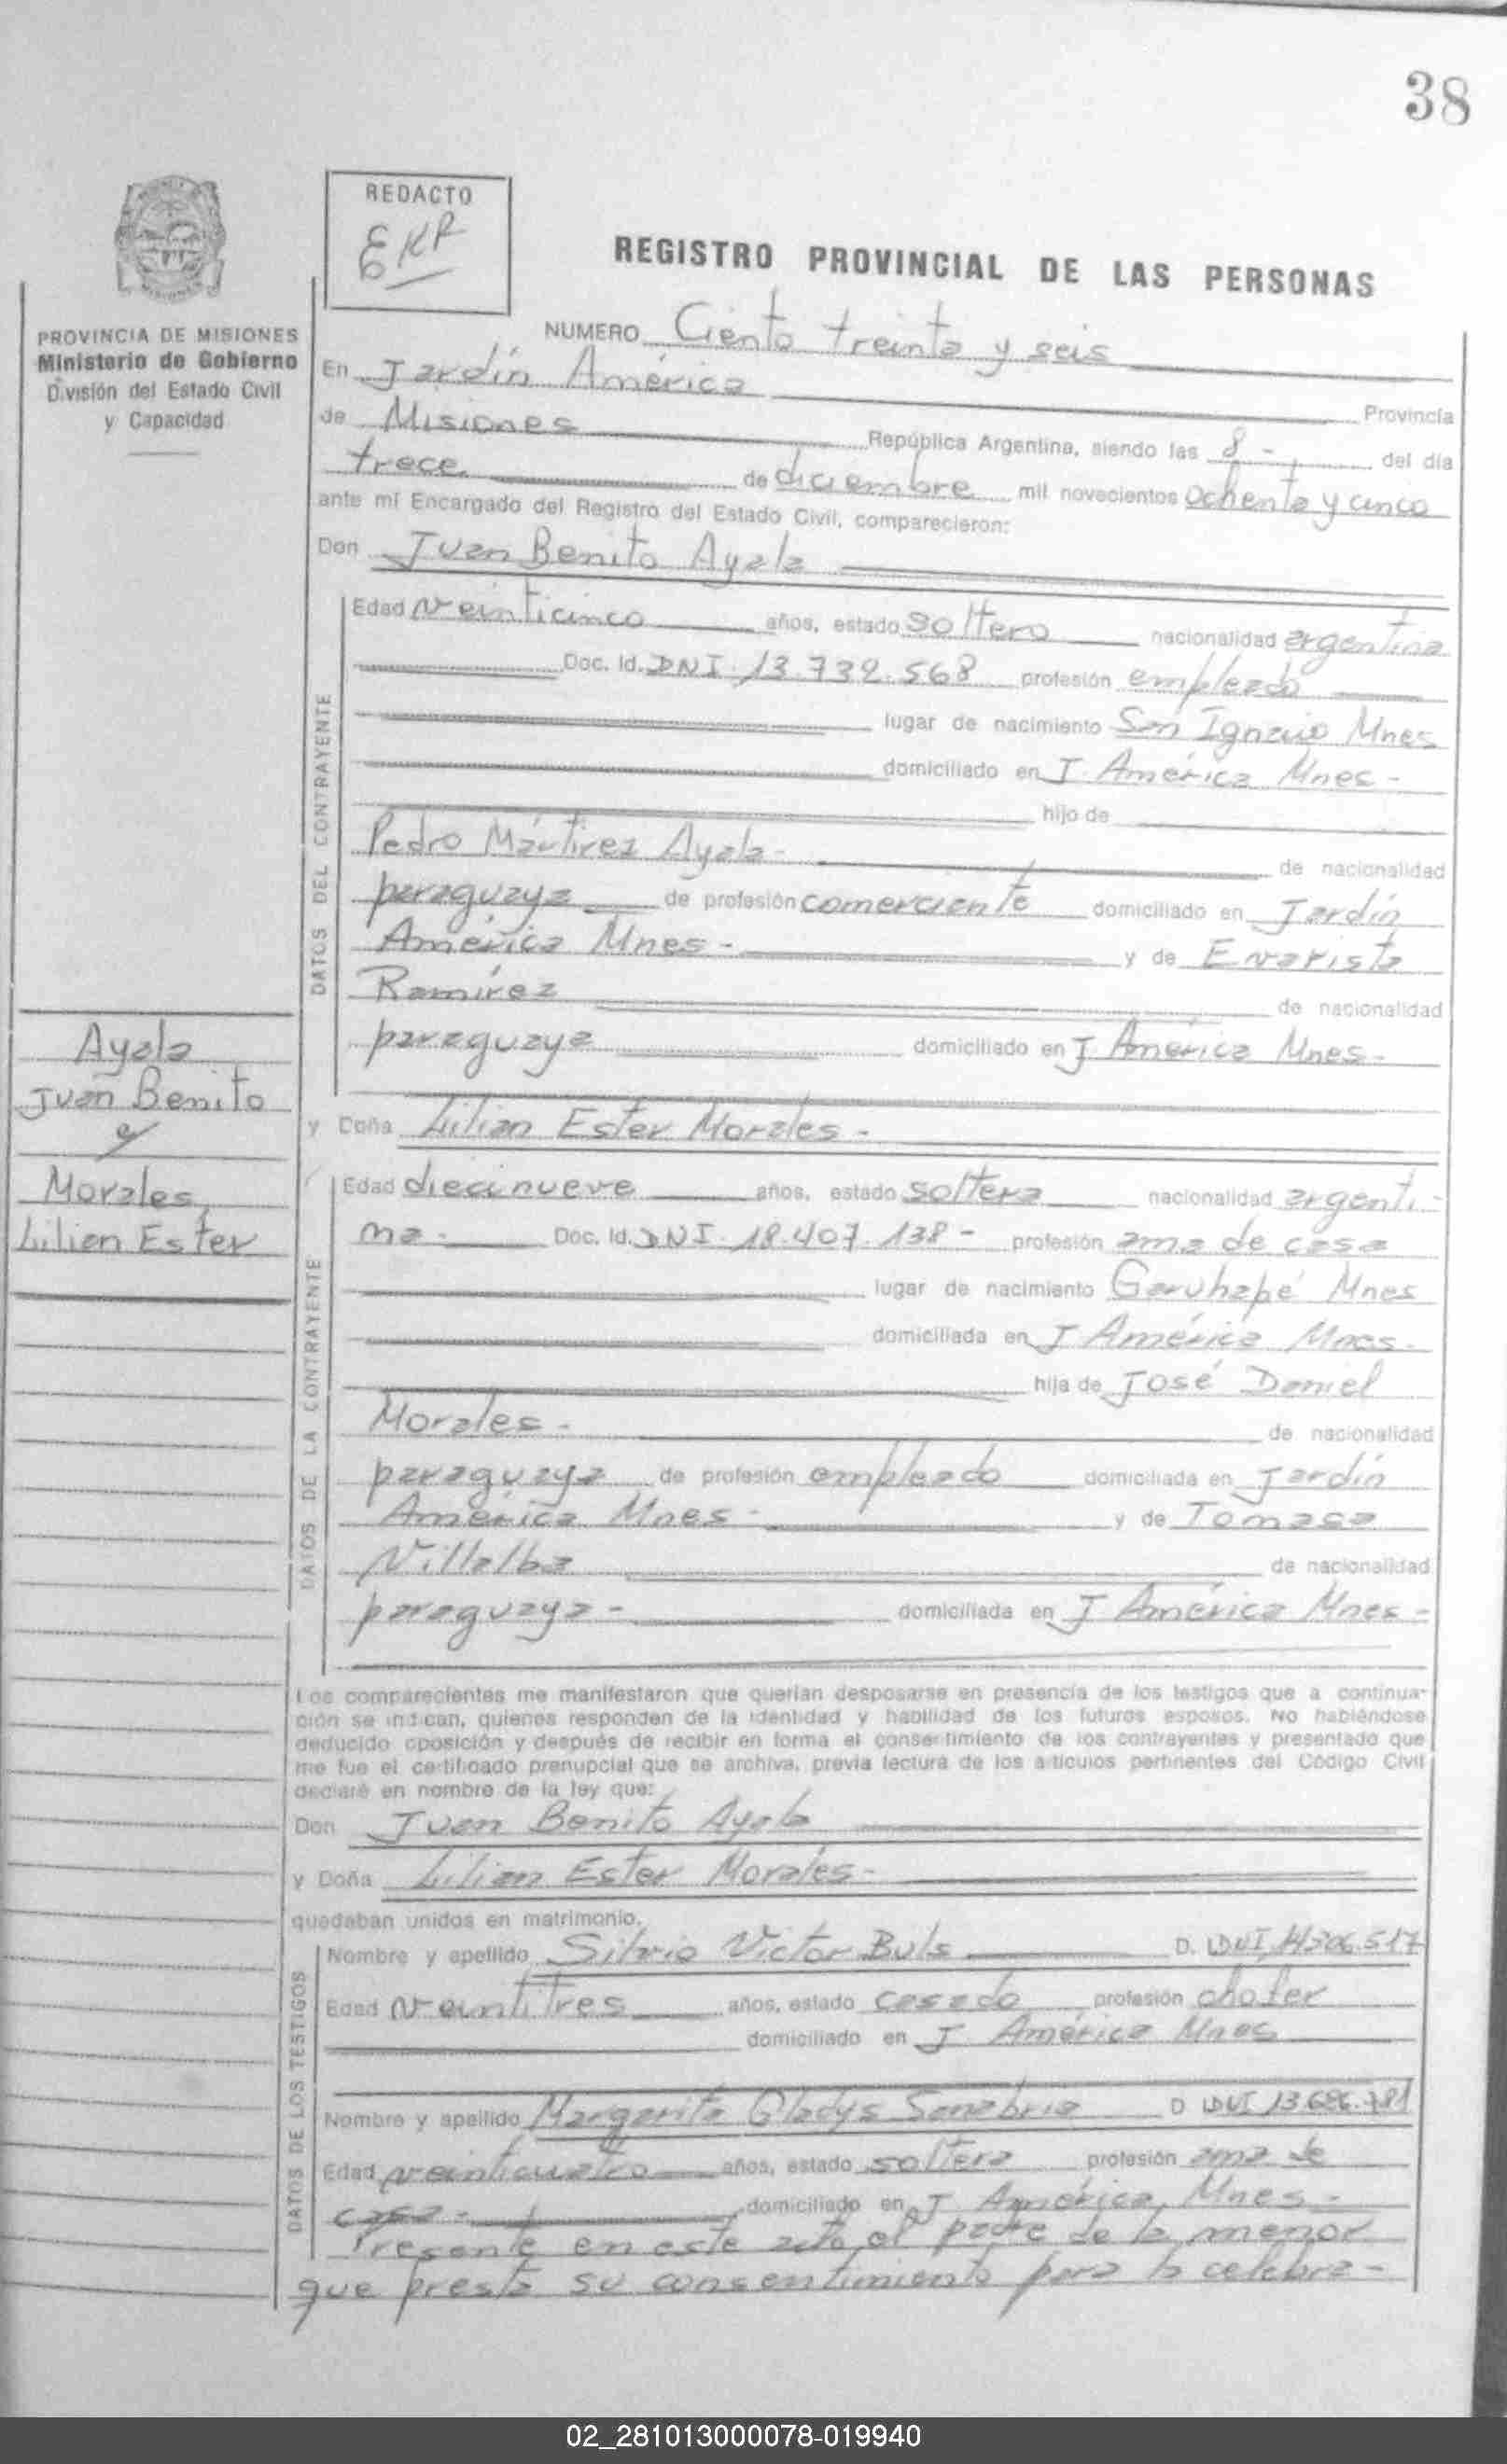 38
REDACTO
REGISTRO PROVINCIAL DE LAS PERSONAS
PROVINCIA DE MISIONES
Ministerio de Gobierno
División del Estado Civil
y Capacidad
NUMERO Ciento treinta y seis
En Jardín América Provincia
de Misiones República Argentina, siendo las 8 - del día
trece de diciembre mil novecientos ochenta y cinco
ante mí Encargado del Registro del Estado Civil, comparecieron:
Don Juan Benito Ayala
DATOS DEL CONTRAYENTE
Edad veinticinco años, estado soltero nacionalidad argentina
Doc. Id. DNI 13.732.568 profesión empleado
lugar de nacimiento San Ignacio Mnes
domiciliado en J. América Mnes -
hijo de
Pedro Mártirez Ayala - de nacionalidad
paraguaya de profesión comerciante domiciliado en Jardín
América Mnes - y de Evarista
Ramírez de nacionalidad
paraguaya domiciliado en J. América Mnes -
Ayala
Juan Benito
y
Morales
Lilian Ester
y Doña Lilian Ester Morales -
DATOS DE LA CONTRAYENTE
Edad diecinueve años, estado soltera nacionalidad argenti-
na - Doc. Id. DNI 18.407.138 - profesión ama de casa
lugar de nacimiento Garuhapé Mnes
domiciliada en J América Mnes -
hija de José Daniel
Morales - de nacionalidad
paraguaya de profesión empleado domiciliada en Jardín
América Mnes - y de Tomasa
Villalba de nacionalidad
paraguaya - domiciliada en J América Mnes -
Los comparecientes me manifestaron que querían desposarse en presencia de los testigos que a continua-
ción se indican, quienes responden de la identidad y habilidad de los futuros esposos. No habiéndose
deducido oposición y después de recibir en forma el consentimiento de los contrayentes y presentado que
me fue el certificado prenupcial que se archiva, previa lectura de los artículos pertinentes del Código Civil
declaré en nombre de la ley que:
Don Juan Benito Ayala
y Doña Lilian Ester Morales -
quedaban unidos en matrimonio.
DATOS DE LOS TESTIGOS
Nombre y apellido Silvio Victor Buls D. I. DNI 14.306.517
Edad veintitres años, estado casado profesión chofer
domiciliado en J América Mnes
Nombre y apellido Margarita Gladys Sanabria D I. DNI 13.686.781
Edad veinticuatro años, estado soltera profesión ama de
casa - domiciliado en J América, Mnes -
Presente en este acto el padre de la menor
que presta su consentimiento para la celebra-
02_281013000078-019940